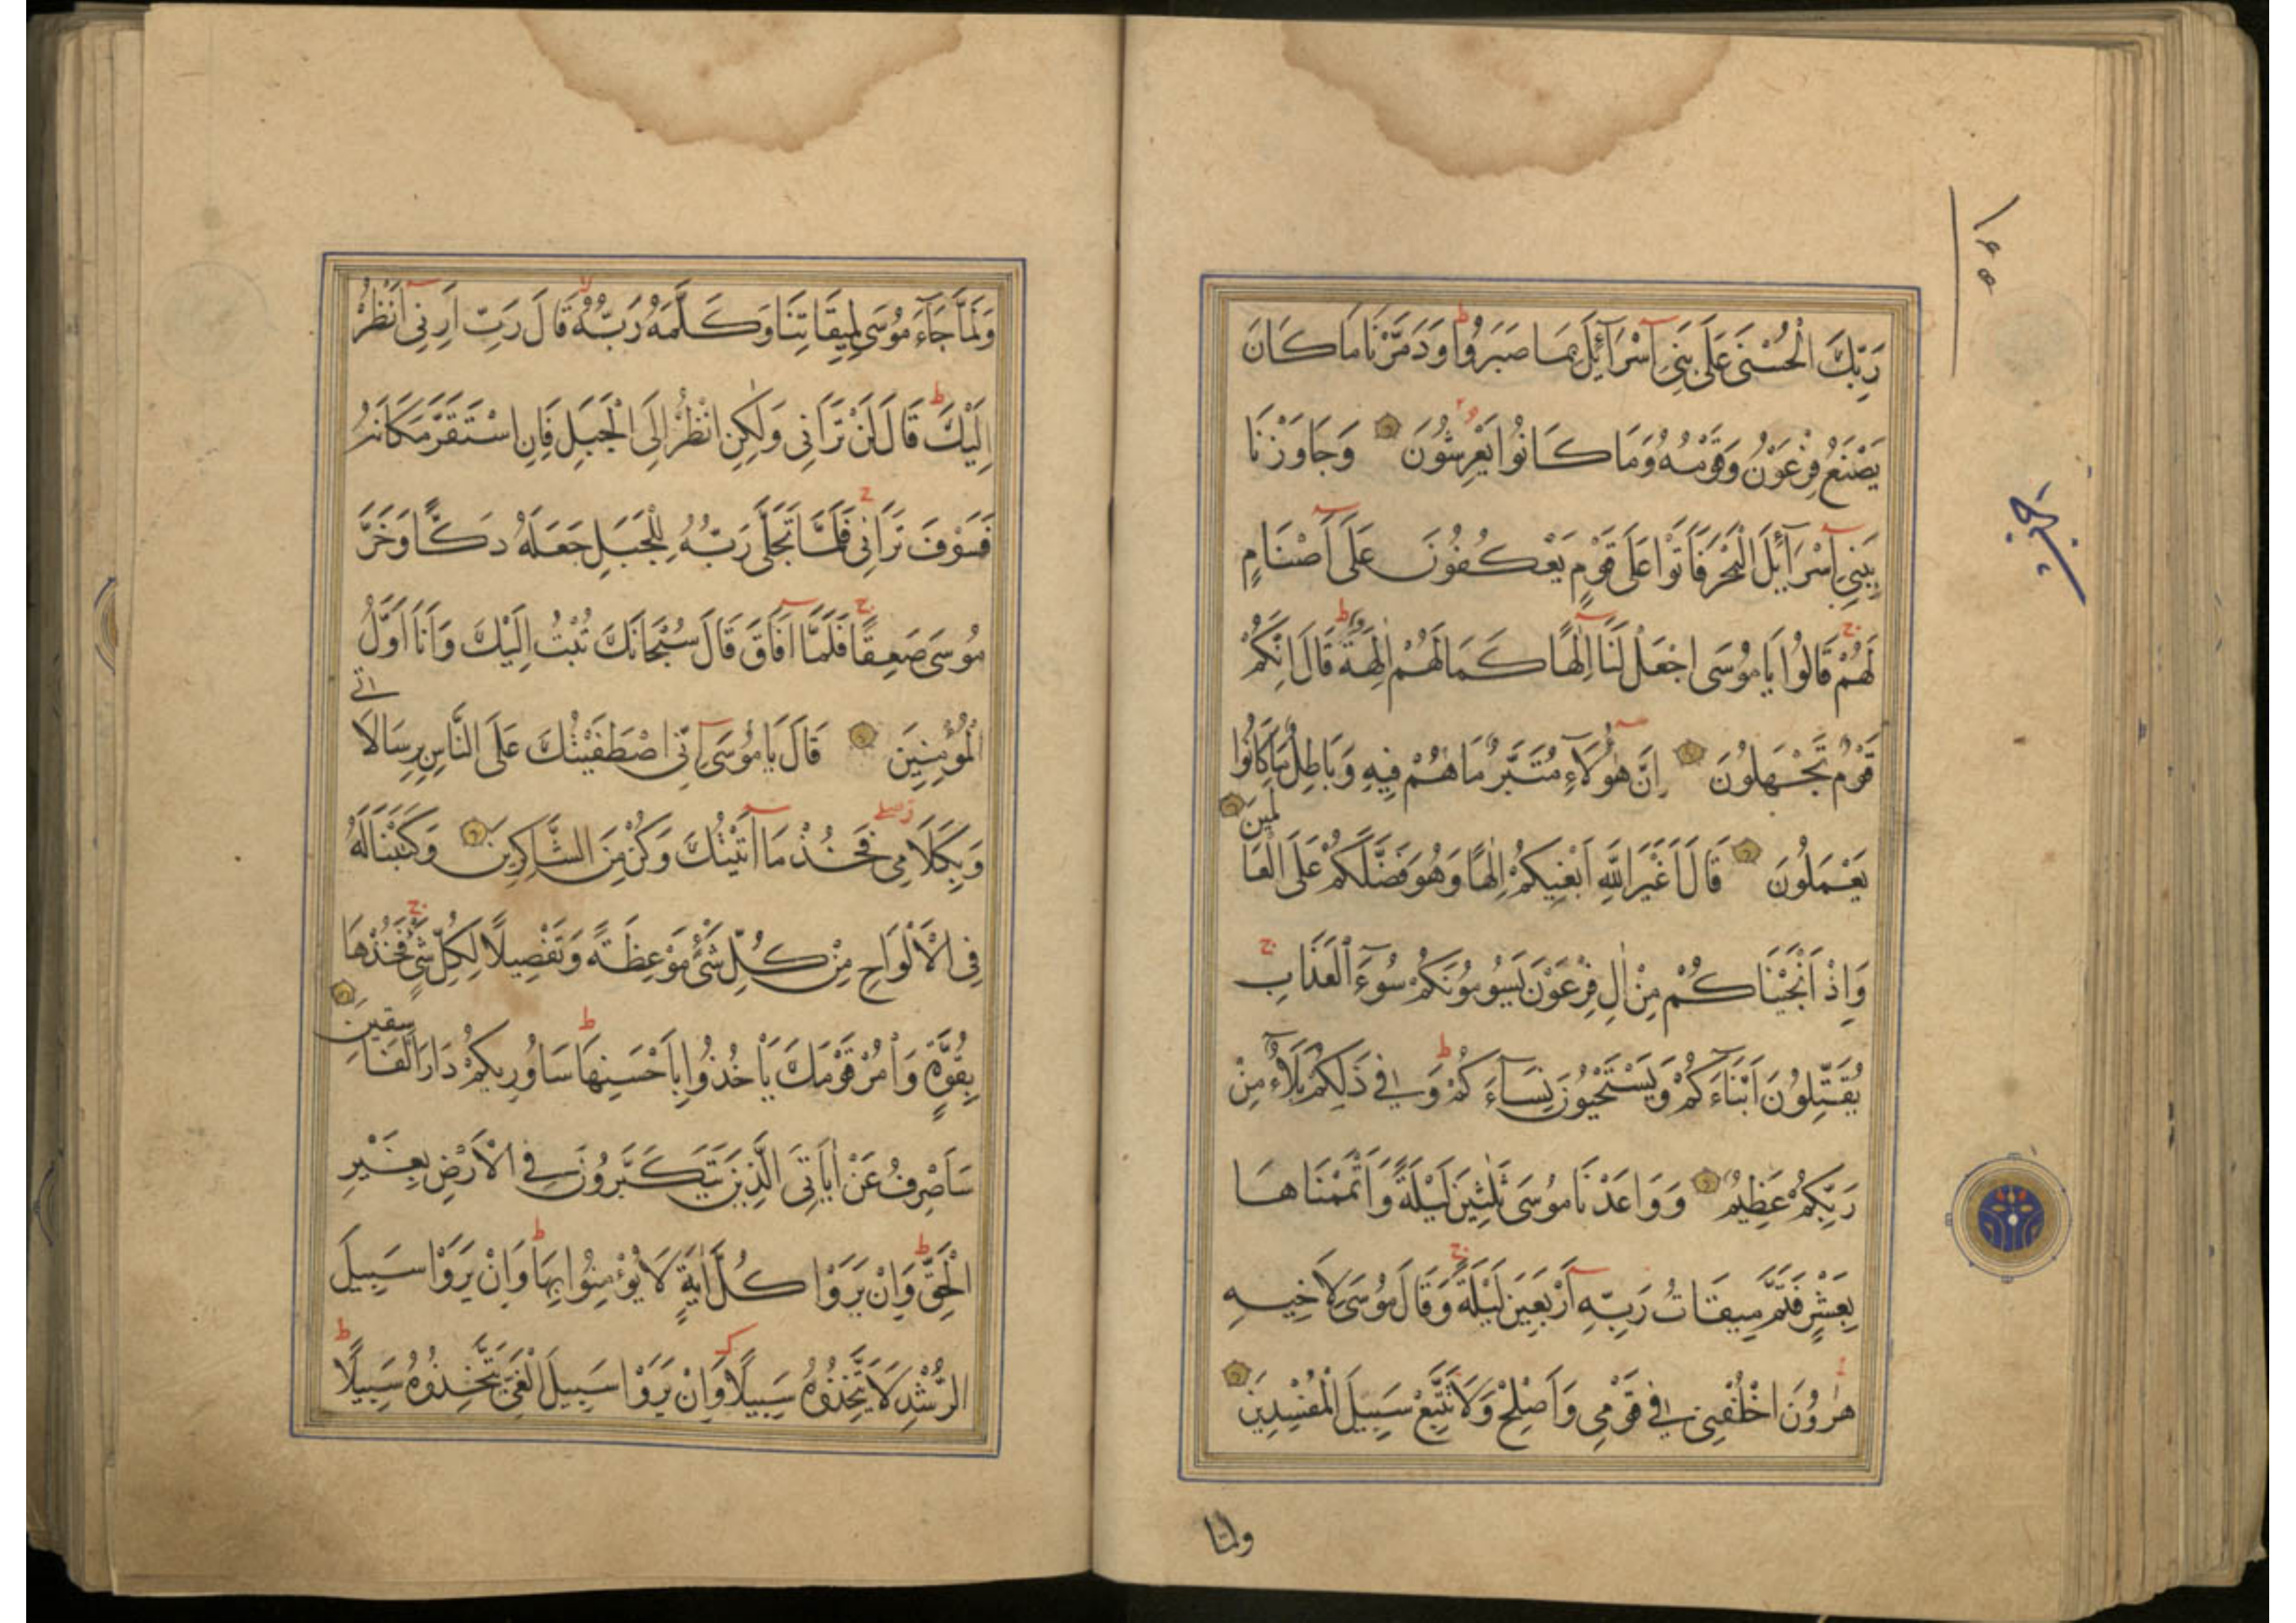 ١٤٥
رَبِّكَ الْحُسْنَى عَلَى بَنِى اِسْرَآئِلَ بِمَا صَبَرُوا وَدَمَّرْنَا مَا كَانَ
يَصْنَعُ فِرْعَوْنُ وَقَوْمُهُ وَمَا كَانُوا يَعْرِشُونَ وَجَاوَزْنَا
بِبَنِى اِسْرَآئِلَ الْبَحْرَ فَاَتَوْا عَلَى قَوْمٍ يَعْكُفُونَ عَلَى اَصْنَامٍ
لَهُمْ قَالُوا يَا مُوسَى اجْعَلْ لَنَا اِلٰهًا كَمَا لَهُمْ اٰلِهَةٌ قَالَ اِنَّكُمْ
قَوْمٌ تَجْهَلُونَ اِنَّ هٰؤُلَآءِ مُتَبَّرٌ مَا هُمْ فِيهِ وَبَاطِلٌ مَا كَانُوا
يَعْمَلُونَ قَالَ اَغَيْرَ اللّٰهِ اَبْغِيكُمْ اِلٰهًا وَهُوَ فَضَّلَكُمْ عَلَى الْعَالَمِينَ
وَاِذْ اَنْجَيْنَاكُمْ مِنْ اٰلِ فِرْعَوْنَ يَسُومُونَكُمْ سُوٓءَ الْعَذَابِ
يُقَتِّلُونَ اَبْنَآءَكُمْ وَيَسْتَحْيُونَ نِسَآءَكُمْ وَفِى ذَلِكُمْ بَلَآءٌ مِنْ
رَبِّكُمْ عَظِيمٌ وَوَاعَدْنَا مُوسَى ثَلٰثِينَ لَيْلَةً وَاَتْمَمْنَاهَا
بِعَشْرٍ فَتَمَّ مِيقَاتُ رَبِّهِ اَرْبَعِينَ لَيْلَةً وَقَالَ مُوسَى لِاَخِيهِ
هٰرُونَ اخْلُفْنِى فِى قَوْمِى وَاَصْلِحْ وَلَا تَتَّبِعْ سَبِيلَ الْمُفْسِدِينَ
ولما
وَلَمَّا جَآءَ مُوسَى لِمِيقَاتِنَا وَكَلَّمَهُ رَبُّهُ قَالَ رَبِّ اَرِنِى اَنْظُرْ
اِلَيْكَ قَالَ لَنْ تَرَانِى وَلٰكِنِ انْظُرْ اِلَى الْجَبَلِ فَاِنِ اسْتَقَرَّ مَكَانَهُ
فَسَوْفَ تَرَانِى فَلَمَّا تَجَلَّى رَبُّهُ لِلْجَبَلِ جَعَلَهُ دَكًّا وَخَرَّ
مُوسَى صَعِقًا فَلَمَّا اَفَاقَ قَالَ سُبْحَانَكَ تُبْتُ اِلَيْكَ وَاَنَا اَوَّلُ
الْمُؤْمِنِينَ قَالَ يَا مُوسَى اِنِّى اصْطَفَيْتُكَ عَلَى النَّاسِ بِرِسَالَاتِى
وَبِكَلَامِى فَخُذْ مَا اٰتَيْتُكَ وَكُنْ مِنَ الشَّاكِرِينَ وَكَتَبْنَا لَهُ
فِى الْاَلْوَاحِ مِنْ كُلِّ شَىْءٍ مَوْعِظَةً وَتَفْصِيلًا لِكُلِّ شَىْءٍ فَخُذْهَا
بِقُوَّةٍ وَاْمُرْ قَوْمَكَ يَاْخُذُوا بِاَحْسَنِهَا سَاُورِيكُمْ دَارَ الْفَاسِقِينَ
سَاَصْرِفُ عَنْ اٰيَاتِىَ الَّذِينَ يَتَكَبَّرُونَ فِى الْاَرْضِ بِغَيْرِ
الْحَقِّ وَاِنْ يَرَوْا كُلَّ اٰيَةٍ لَا يُؤْمِنُوا بِهَا وَاِنْ يَرَوْا سَبِيلَ
الرُّشْدِ لَا يَتَّخِذُوهُ سَبِيلًا وَاِنْ يَرَوْا سَبِيلَ الْغَىِّ يَتَّخِذُوهُ سَبِيلًا